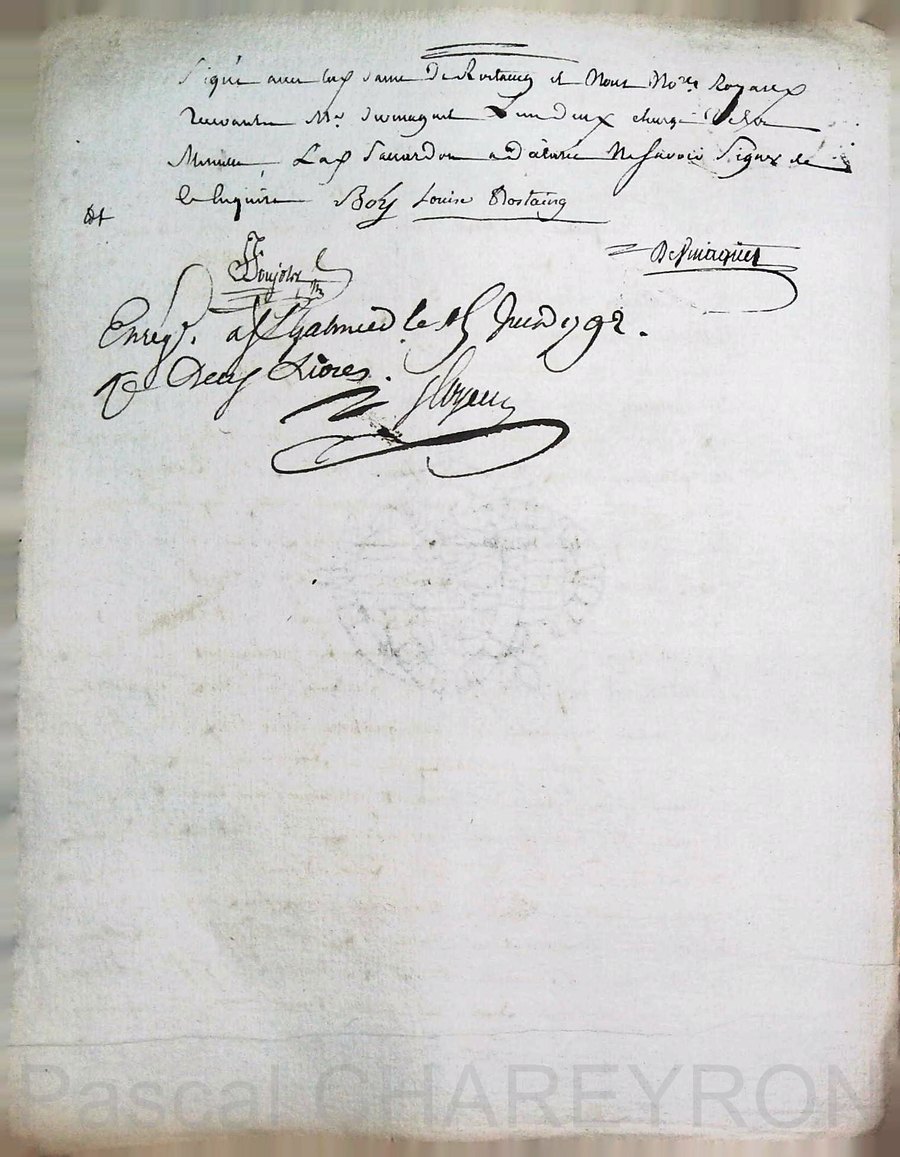 Signé avec lad dame De Rostaing et Nous No.res Royaux
recevants Me Demagnet L'un deux chargé de la
Minutte Lad Savardon a déclaré Ne Savoir Signer de
ce Enquise Boÿ Louise Rostaing
Demagnet
Goujolx
Enreg.t a St Galmier le 15 Juin 1792.
R Deux Livres.
Pascal CHAREYRON